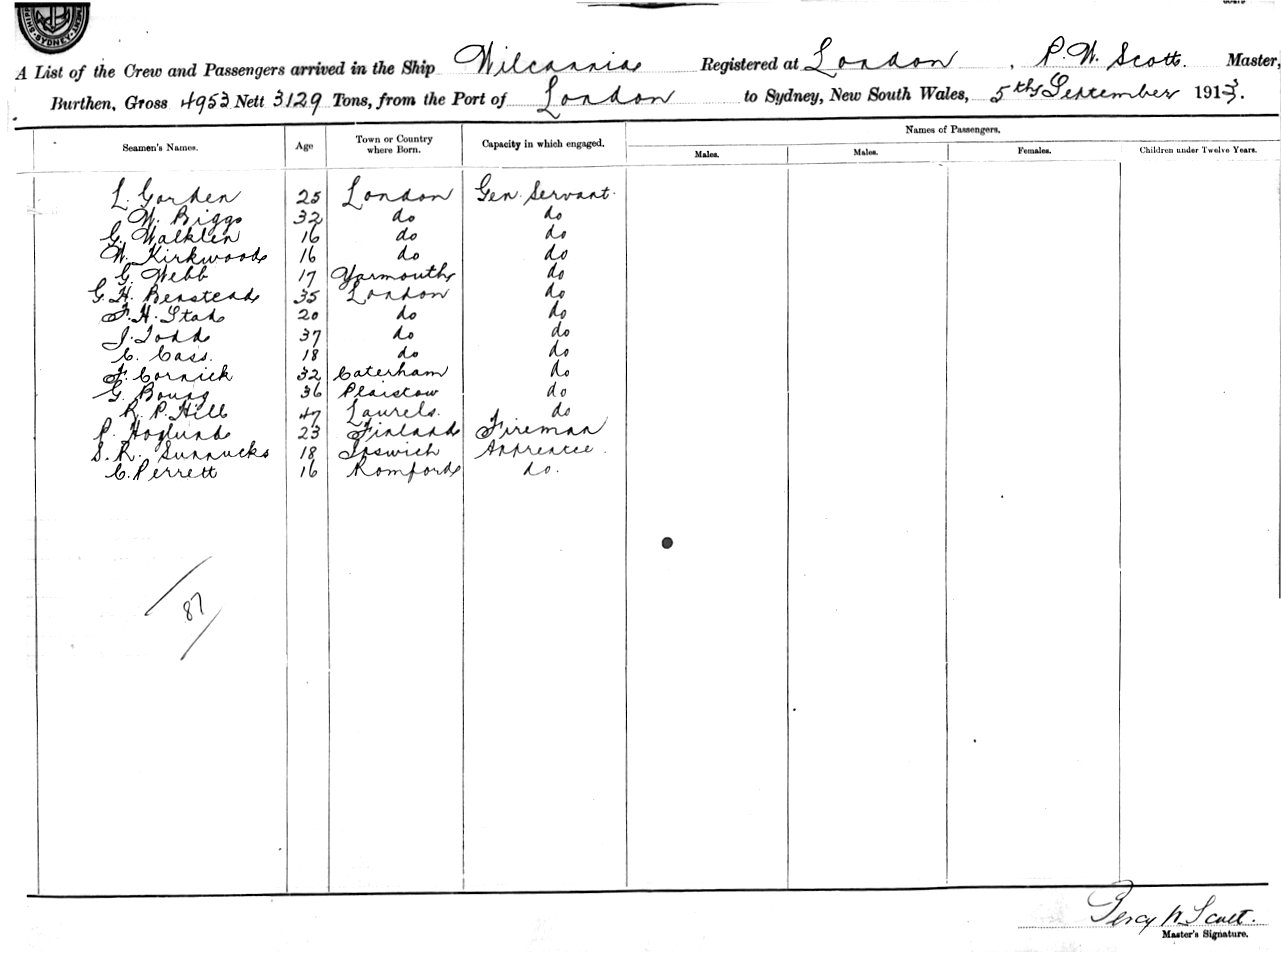 SYDNEY
A List of the Crew and Passengers arrived in the Ship Wilcannia Registered at London, P. W. Scott. Master,
Burthen, Gross 4953 Nett 3129 Tons, from the Port of London to Sydney, New South Wales, 5th September 1913.
Names of Passengers.
Seamen's Names. Age Town or Country where Born. Capacity in which engaged. Males. Males. Females. Children under Twelve Years.
L. Gorden 25 London Gen. Servant.
W. Biggs 32 do do
G. Walklen 16 do do
W. Kirkwood 16 do do
G. Webb 17 Yarmouth do
G. H. Benstead 35 London do
F. H. Stad 20 do do
J. Todd 37 do do
C. Cass. 18 do do
F. Cornick 32 Caterham do
G. 36 Plaistow do
R. P. Hill 47 Laurels. do
P. Hoglund 23 Finland Fireman
S. R. Sunnucks 18 Ipswich Apprentice.
C. Perrett 16 Romford do.
87
Percy W. Scott.
Master's Signature.